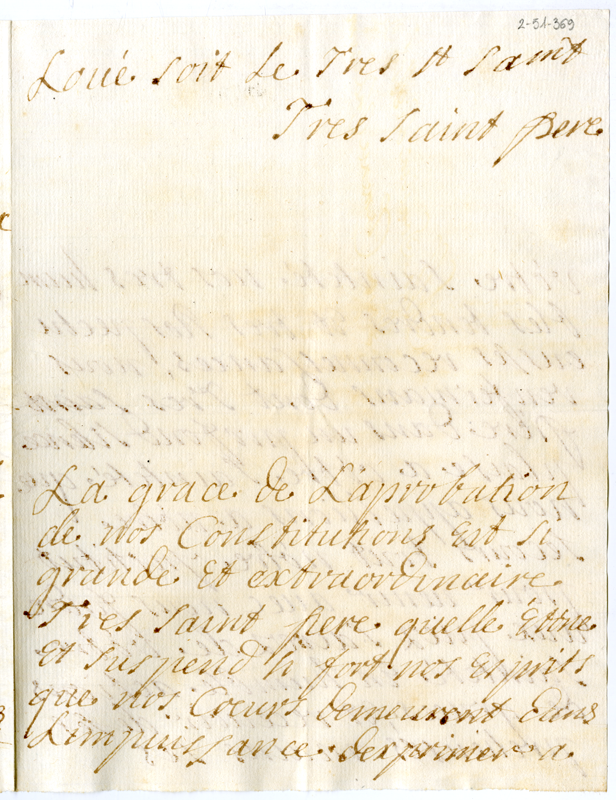 2-51-369
Loué soit le tres st sam̃t
Tres saint pere
La grace de Laprobation
de nos Constitutions Est si
grande Et extraordinaire
Tres saint pere quelle Étone
Et suspend si fort nos Esprits
que nos Coeurs demeurent dans
Limpuissance dexprimer a